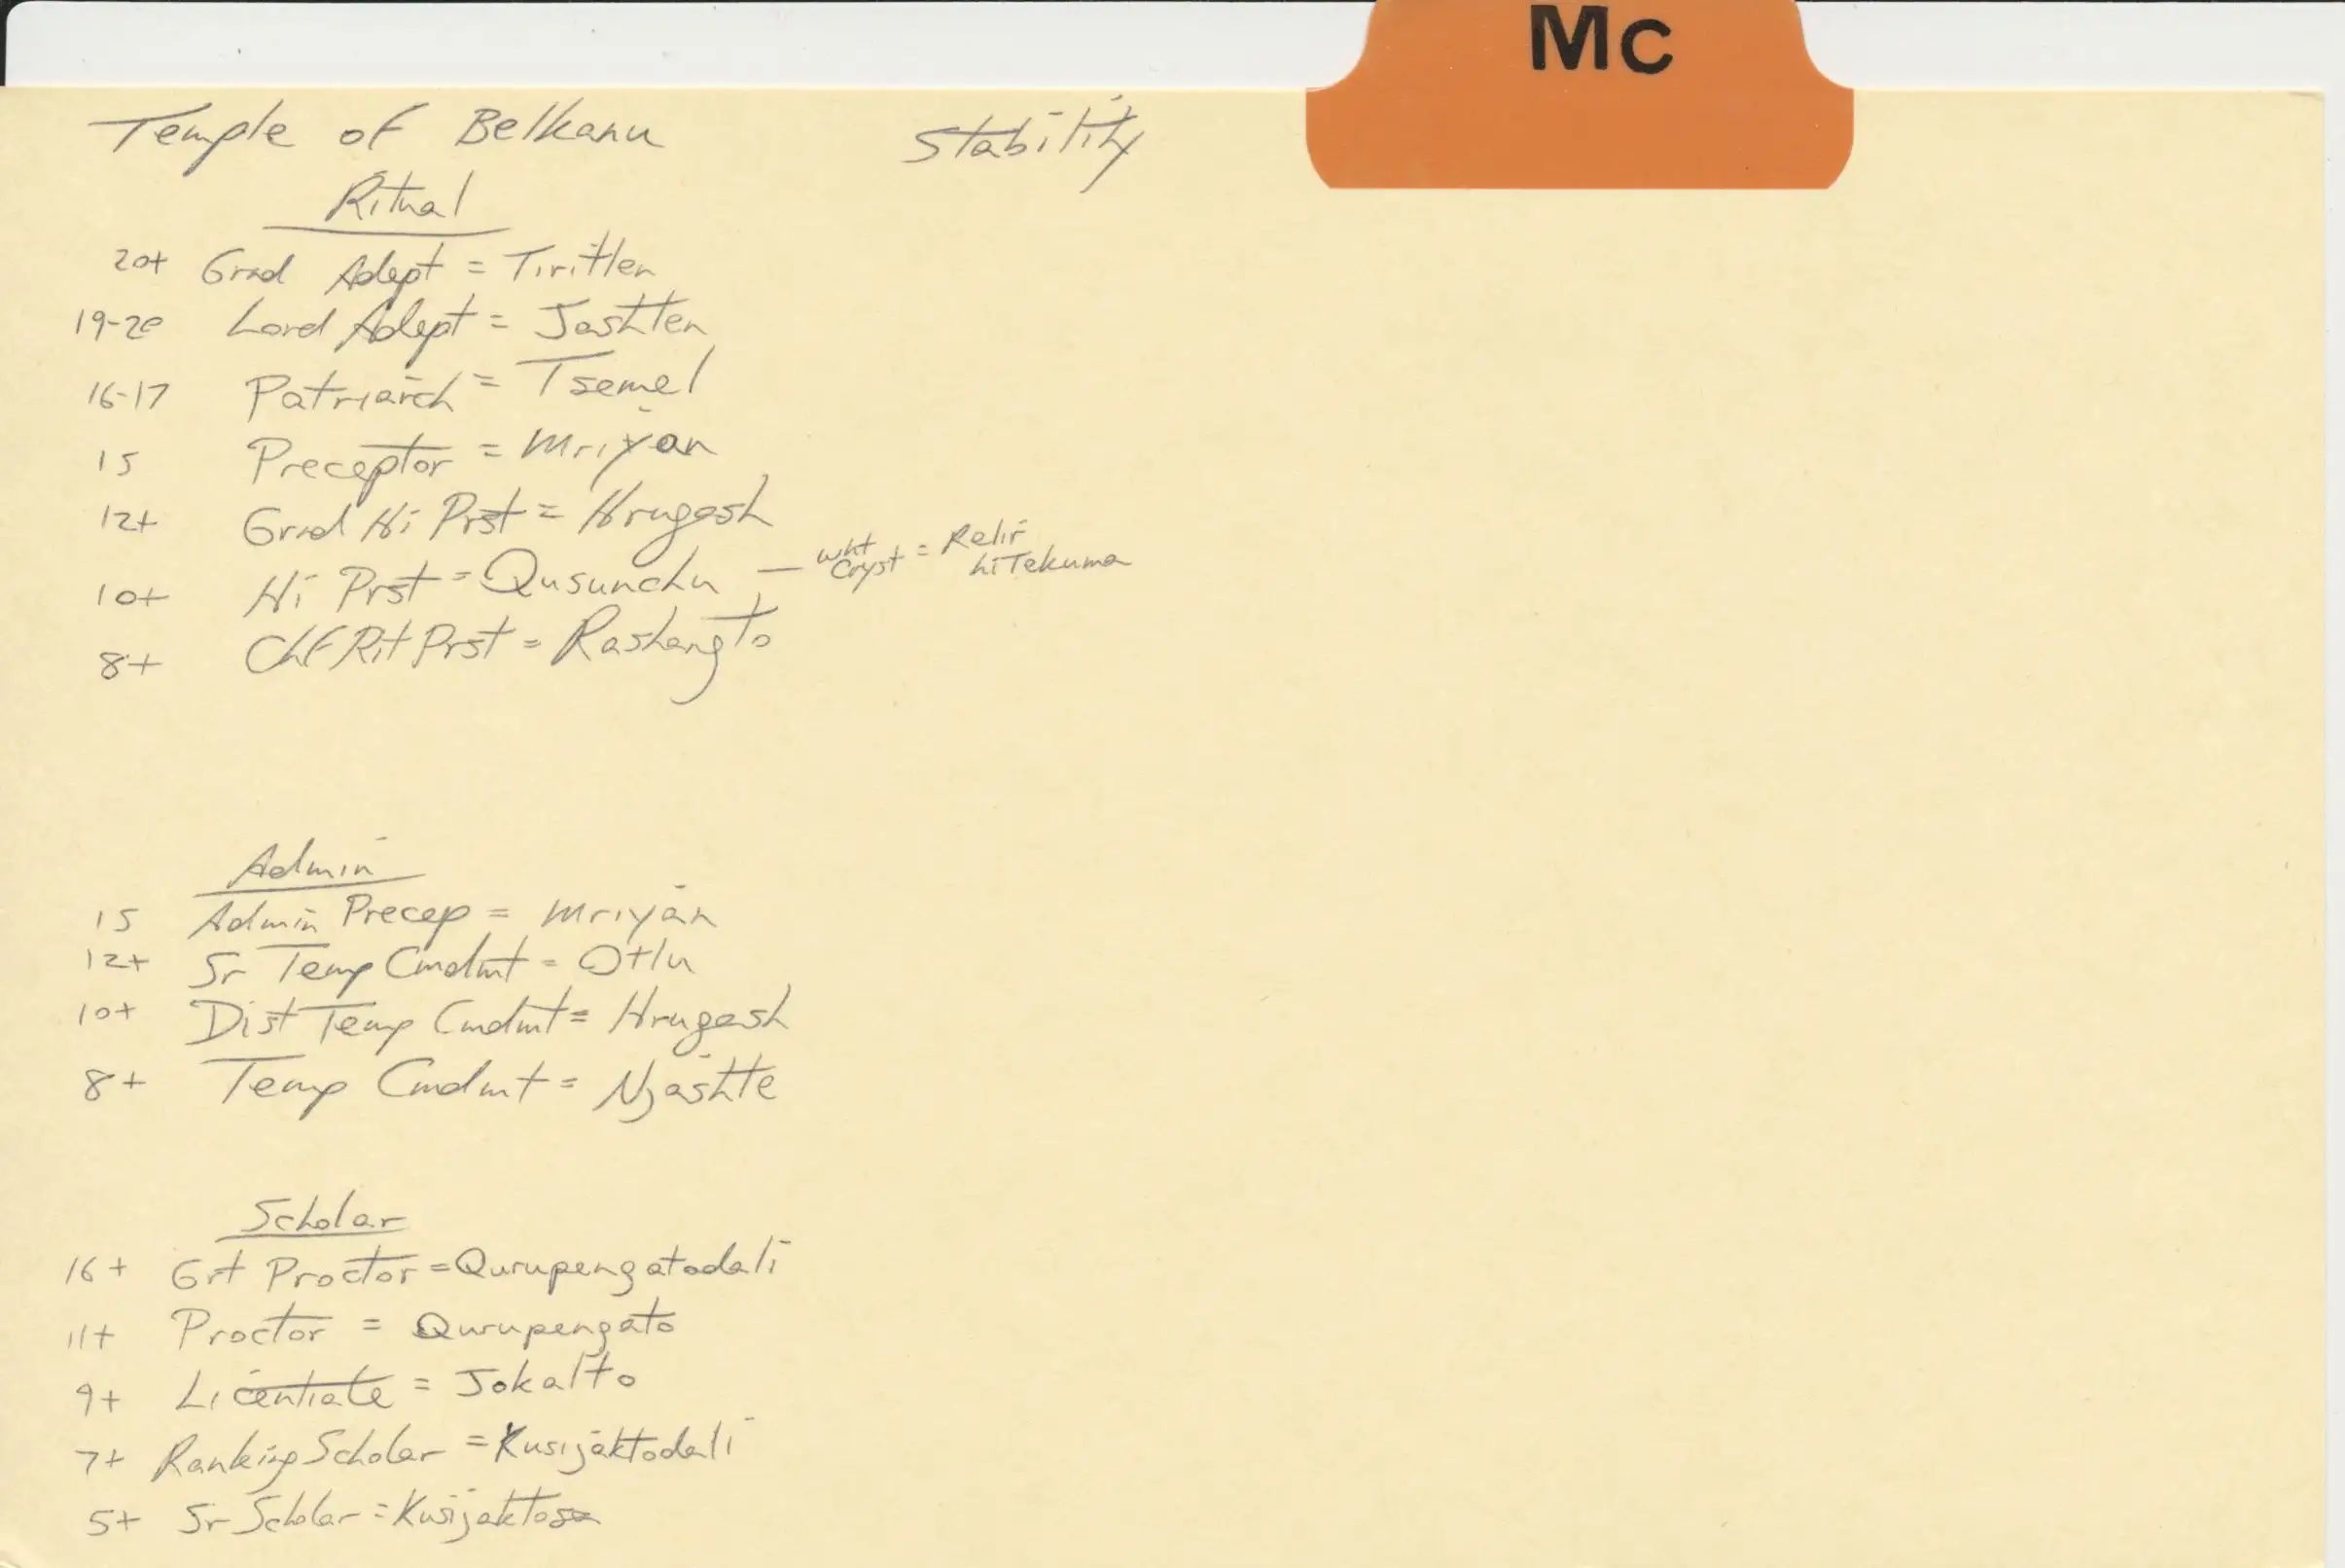 Mc
Temple of Belkanu Stability
Ritual
20+ Grnd Adept = Tiritlen
19-20 Lord Adept = Jashten
16-17 Patriarch = Tsemel
15 Preceptor = Mriyan
12+ Grnd Hi Prst = Hrugash
10+ Hi Prst = Qusunchu — wht Cryst = Relir hiTekuma
8+ Chf Rit Prst = Rashangto
Admin
15 Admin Precep = Mriyan
12+ Sr Temp Cmdmt = Otlu
10+ Dist Temp Cmdmt = Hrugash
8+ Temp Cmdmt = Njashte
Scholar
16+ Grt Proctor = Qurupengatodali
11+ Proctor = Qurupengato
9+ Licentiate = Jokalto
7+ Ranking Scholar = Kusijaktodali
5+ Sr Scholar =